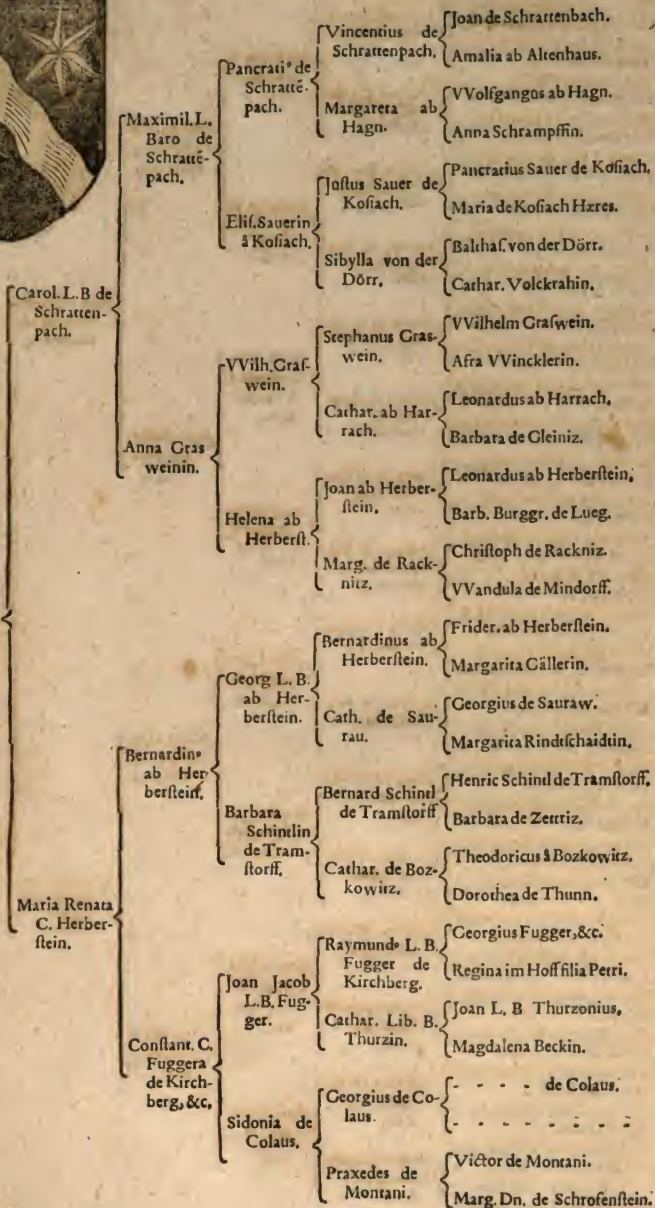 Carol. L. B de
Schratten-
pach.
Maria Renata
C. Herber-
ſtein.
Maximil. L.
Baro de
Schrattẽ-
pach.
Anna Gras
weinin.
Bernardin⁹
ab Her-
berſtein.
Conſtant. C.
Fuggera
de Kirch-
berg, &c.
Pancrati⁹ de
Schrattẽ-
pach.
Eliſ. Sauerin
â Koſiach.
VVilh. Graſ-
wein.
Helena ab
Herberſt.
Georg L. B.
ab Her-
berſtein.
Barbara
Schintlin
de Tram-
ſtorff.
Joan Jacob
L. B. Fug-
ger.
Sidonia de
Colaus.
Vincentius de
Schrattenpach.
Margareta ab
Hagn.
Juſtus Sauer de
Koſiach.
Sibylla von der
Dörr.
Stephanus Gras-
wein.
Cathar. ab Har-
rach.
Joan ab Herber-
ſtein.
Marg. de Rack-
nitz.
Bernardinus ab
Herberſtein.
Cath. de Sau-
rau.
Bernard Schintl
de Tramſtorff
Cathar. de Boz-
kowitz.
Raymund⁹ L. B.
Fugger de
Kirchberg.
Cathar. Lib. B.
Thurzin.
Georgius de Co-
laus.
Praxedes de
Montani.
Joan de Schrattenbach.
Amalia ab Altenhaus.
VVolfgangus ab Hagn.
Anna Schrampffin.
Pancratius Sauer de Koſiach.
Maria de Koſiach Hæres.
Balthaſ. von der Dörr.
Cathar. Volckrahin.
VVilhelm Graſwein.
Afra VVincklerin.
Leonardus ab Harrach.
Barbara de Gleiniz.
Leonardus ab Herberſtein.
Barb. Burggr. de Lueg.
Chriſtoph de Rackniz.
VVandula de Mindorff.
Frider. ab Herberſtein.
Margarita Gällerin.
Georgius de Sauraw.
Margarita Rindtſchaidtin.
Henric Schintl de Tramſtorff.
Barbara de Zettriz.
Theodoricus â Bozkowitz.
Dorothea de Thunn.
Georgius Fugger, &c.
Regina im Hoff filia Petri.
Joan L. B Thurzonius.
Magdalena Beckin.
- - - - de Colaus.
- - - - - - -
Victor de Montani.
Marg. Dn. de Schrofenſtein.